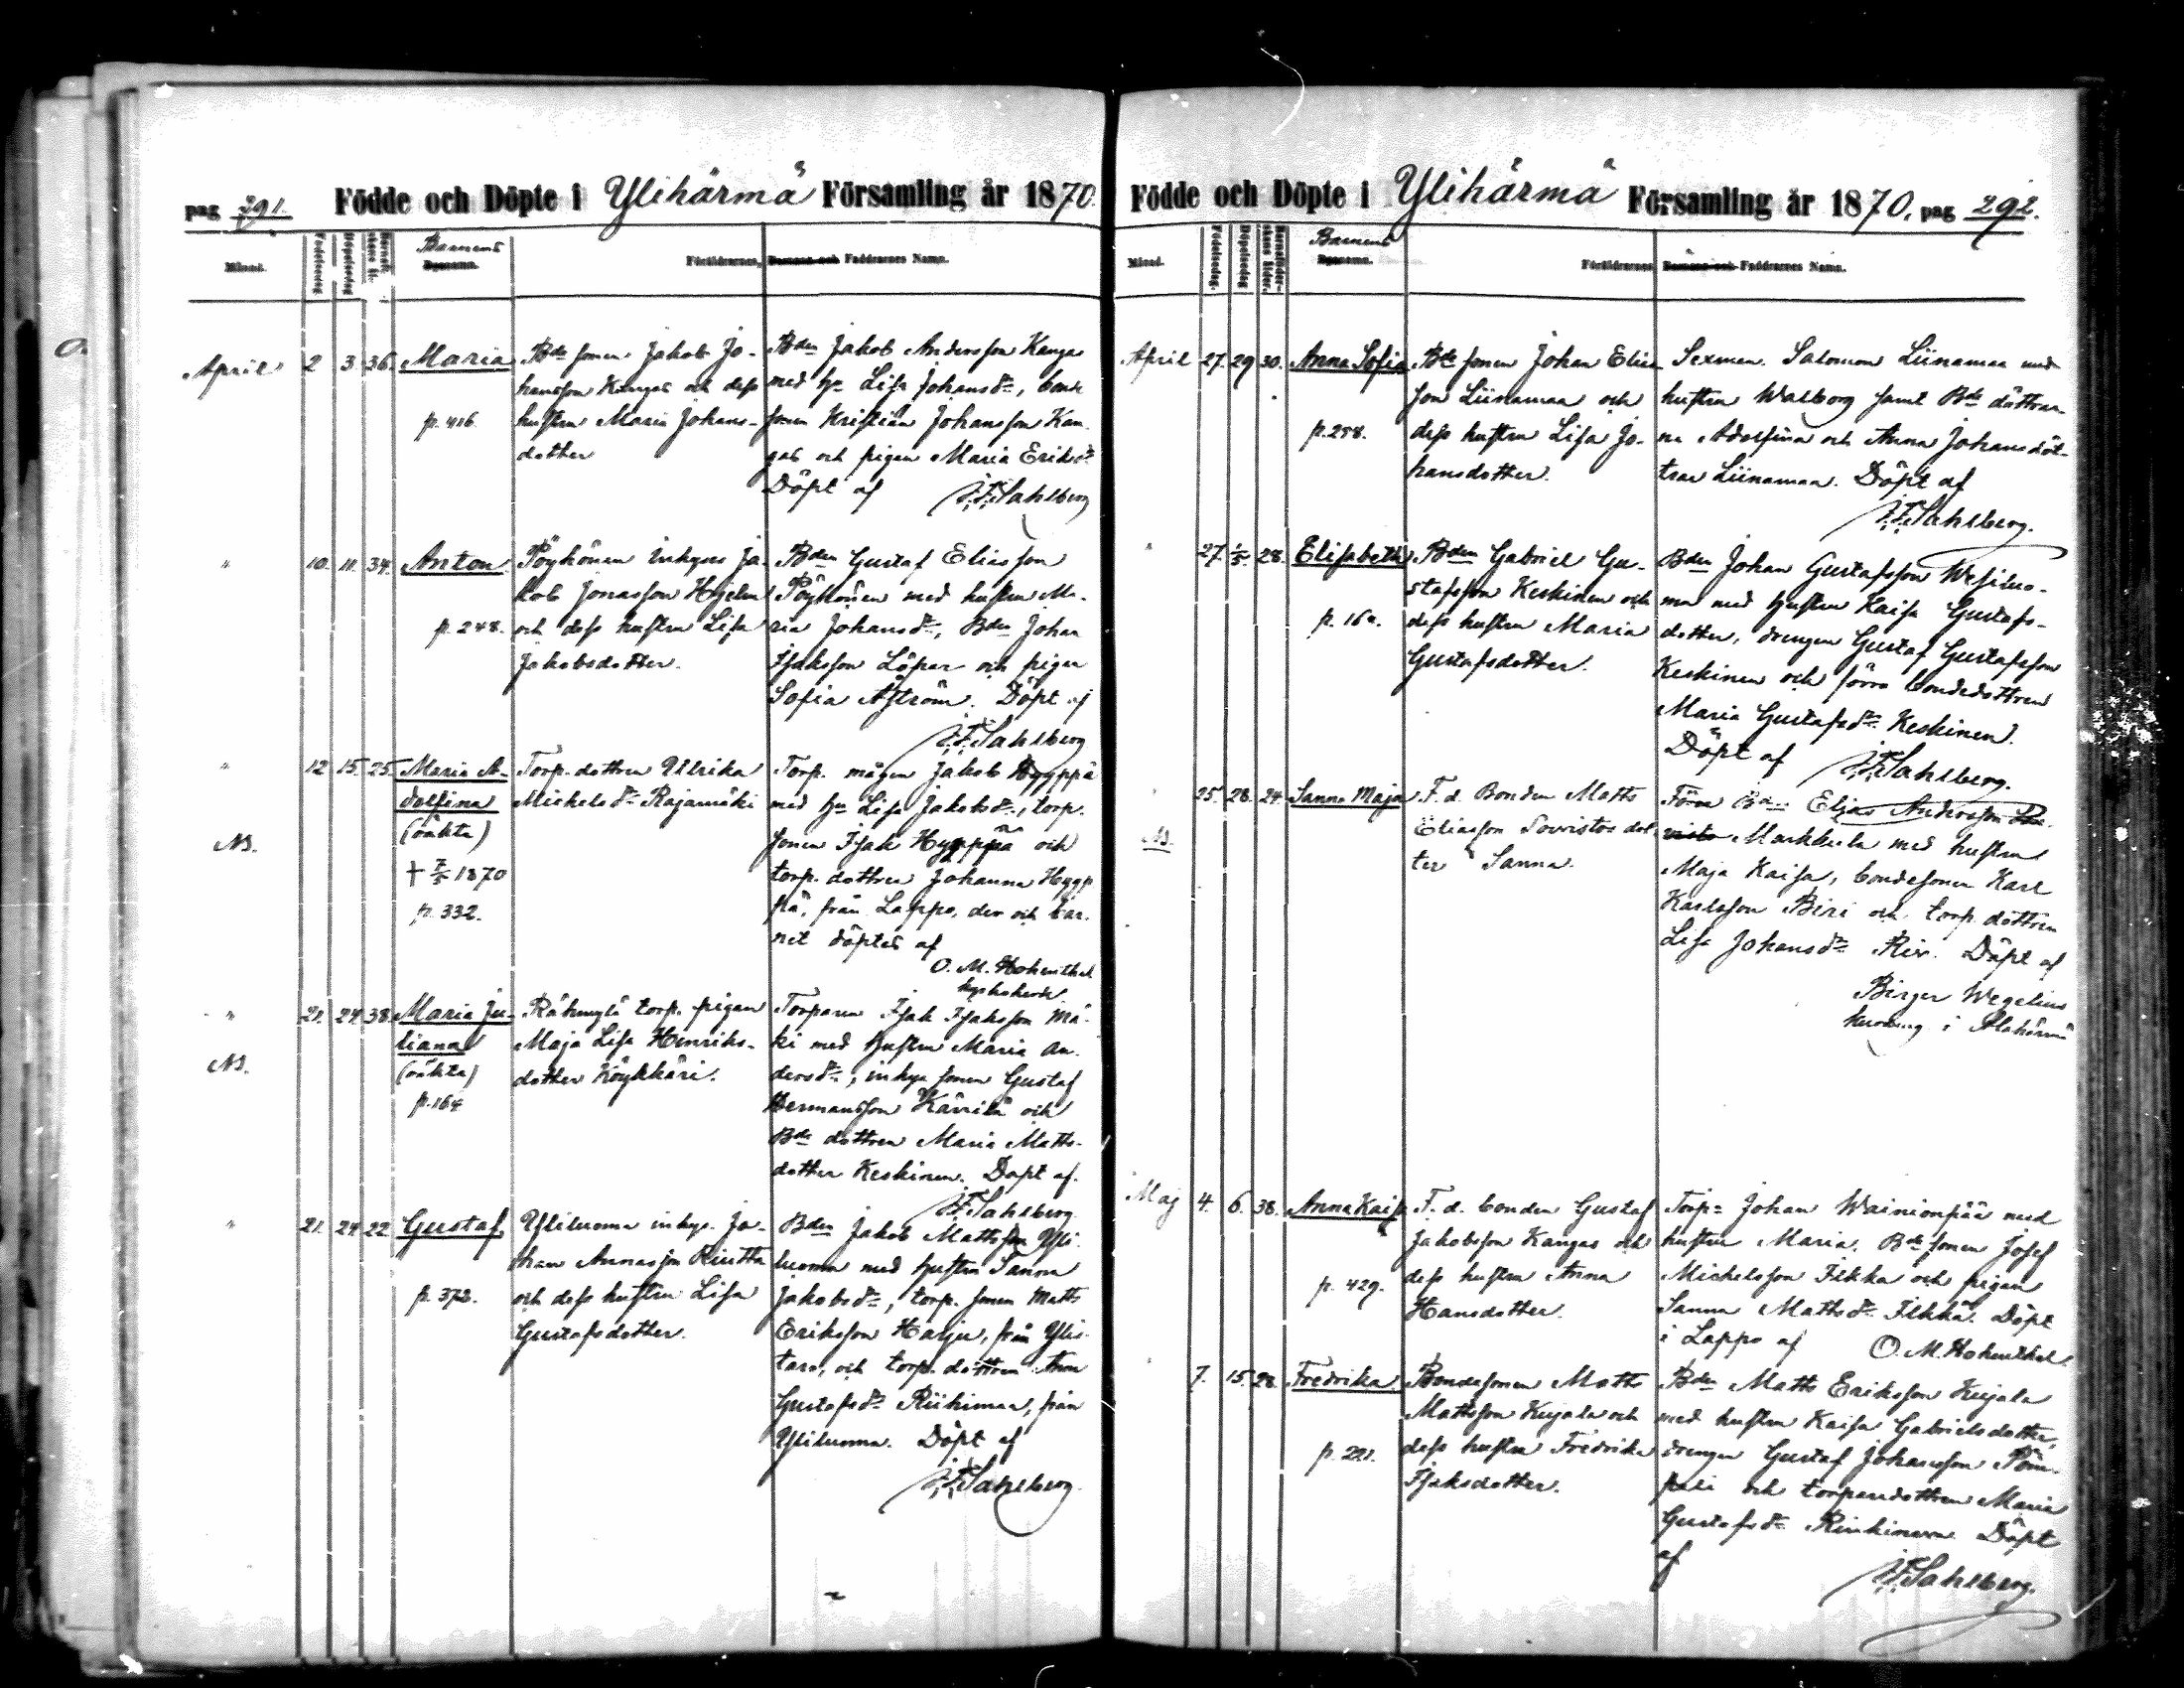 pag 291. Födde och Döpte i Ylihärmä Församling år 1870.
Månad. Födelsedag Döpelsedag Barnens Föräldrarnes, Barnens och Faddrarnes Namn.
April 2 3. 36. Maria
p. 416.
Bde sonen Jakob Jo-
hansson Kangas och dess
hustru Maria Johans-
dotter
Bden Jakob Andersson Kangas
med hu Lisa Johansdr, bonde
sonen Kristian Johansson Kan
gas och pigan Maria Eriksdr
Döpt af J. F. Sahlberg
" 10. 11. 34. Anton
p. 248.
Pöyhönen inhyses Ja-
kob Jonasson Hjelm
och dess hustru Lisa
Jakobsdotter.
Bden Gustaf Eliasson
Pöyhönen med hustru Ma-
ria Johansdr, Bden Johan
Isaksson Löpar och pigan
Sofia Åström. Döpt af
J. F. Sahlberg
" 12 15. 25. Maria A-
dolfina
(oäkta)
† 7/5 1870
p. 332.
NB.
Torp. dottren Ulrika
Michelsdr Rajamäki
Torp. mågen Jakob Hyyppä
med hu Lisa Jakobsdr, torp.
sonen Isak Hyyppä och
torp. dottren Johanna Hyyp
pä, från Lappo, der och bar-
net döptes af
O. M. Hohenthal
kyrkoherde
" 21. 24. 38. Maria Ju-
liana
(oäkta)
p. 164
NB.
torp. pigan
Maja Lisa Henriks-
dotter Köykkäri.
Torparen Isak Isaksson Mä-
ki med hustru Maria An-
dersdr, inhys sonen Gustaf
Hermansson Kärrilä och
Bde dottren Maria Matts-
dotter Keskinen. Döpt af.
J. F. Sahlberg.
" 21. 24. 22. Gustaf.
p. 372.
Yliluoma inhys. Jo-
han Annasson Riutta
och dess hustru Lisa
Gustafsdotter.
Bden Jakob Mattsson Yli-
luoma med hustru Sanna
Jakobsdr, torp. sonen Matts
Eriksson Harju, från Ylis-
taro, och torp. dottren Anna
Gustafsdr Riihimaa, från
Yliluoma. Döpt af
J. F. Sahlberg.
Födde och Döpte i Ylihärmä Församling år 1870. pag 292.
Månad. Födelsedag. Döpelsedag Barnens Föräldrarnes Barnens och Faddrarnes Namn.
April 27. 29 30. Anna Sofia
p. 298.
Bde sonen Johan Elias
son Liinamaa och
dess hustru Lisa Jo-
hansdotter.
Sexman. Salomon Liinamaa med
hustru Walborg samt Bde döttrar-
na Adolfina och Anna Johansdöt-
trar Liinamaa. Döpt af
J. F. Sahlberg.
" 27. 1/5 28. Elisabeth
p. 160.
Bden Gabriel Gu-
stafsson Keskinen och
dess hustru Maria
Gustafsdotter.
Bden Johan Gustafsson Wesiluo-
ma med hustru Kaisa Gustafs-
dotter, drengen Gustaf Gustafsson
Keskinen och förra bondedottren
Maria Gustafsdr Keskinen.
Döpt af J. F. Sahlberg.
25. 28. 24. Sanna Maja
NB.
F. d. Bonden Matts
Eliasson Sorvistos dot-
ter Sanna.
Förra Bden Elias Andersson Sor
visto Markkula med hustru
Maja Kaisa, bondesonen Karl
Karlsson Biri och torp. dottren
Lisa Johansdr Döpt af
Birger Wegelius
i Alahärmä
Maj 4. 6. 38. Anna Kaisa
p. 429.
F. d. bonden Gustaf
Jakobsson Kangas och
dess hustru Anna
Hansdotter.
Torp= Johan Wainionpää med
hustru Maria. Bde sonen Josef
Michelsson Ilkka och pigan
Sanna Mattsdr Ilkka. Döpt
i Lappo af O. M. Hohenthal
7. 15. 28. Fredrika
p. 221.
Bondesonen Matts
Mattsson Kujala och
dess hustru Fredrika
Isaksdotter.
Bden Matts Eriksson Kujala
med hustru Kaisa Gabrielsdotter,
drengen Gustaf Johansson
och torparedottren Maria
Gustafsdr Döpt
af
J. F. Sahlberg.